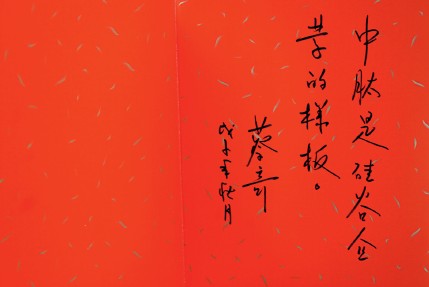 中肽是硅谷企
業的样板。
蔡奇
戊子年秋月